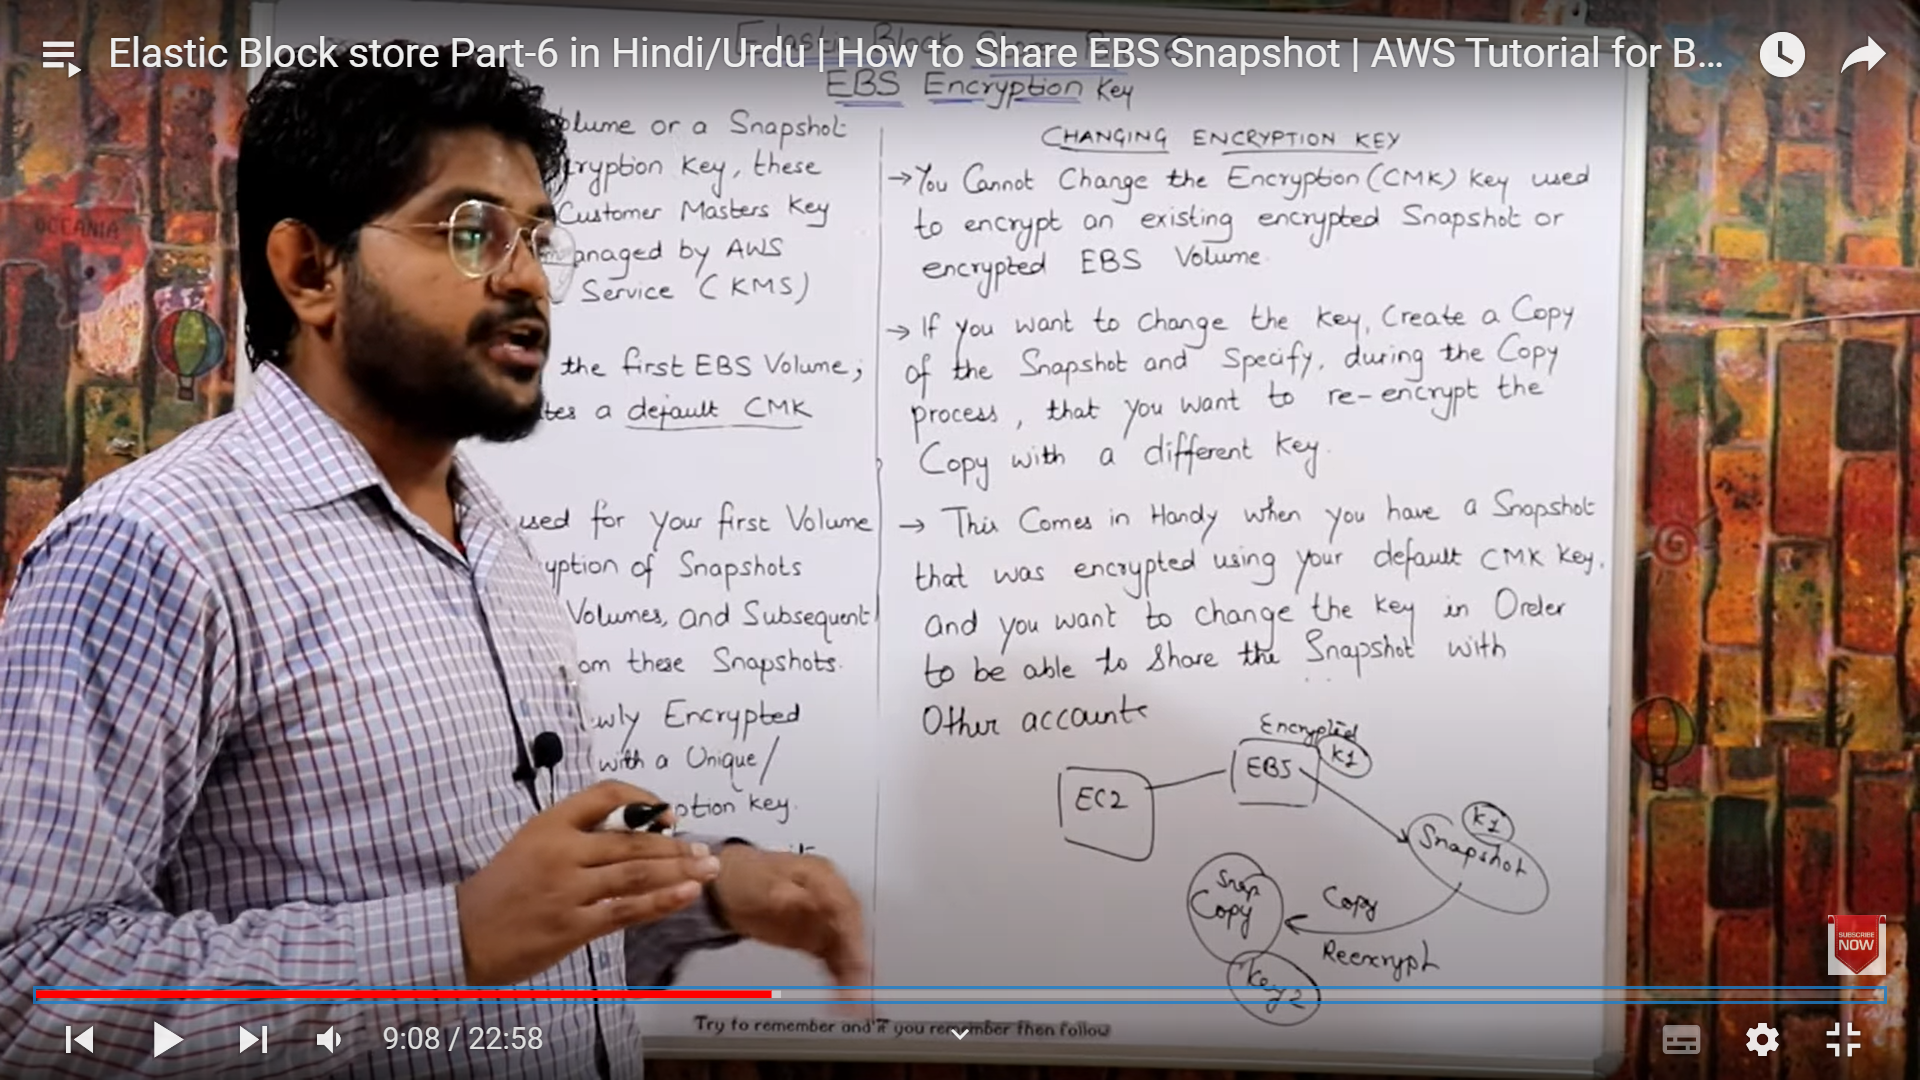 Elastic Block store Part-6 in Hindi/Urdu | How to Share EBS Snapshot | AWS Tutorial for B...
EBS Encryption Key
volume or a Snapshot
cryption Key, these
Customer Masters Key
managed by AWS
Service (KMS)
the first EBS Volume;
tes a default CMK
used for your first Volume
yption of Snapshots
Volumes, and Subsequent
om these Snapshots.
wly Encrypted
with a Unique/
ption key.
CHANGING ENCRYPTION KEY
→ You Cannot Change the Encryption (CMK) Key used
to encrypt an existing encrypted Snapshot or
encrypted EBS Volume.
→ If you want to change the key, Create a Copy
of the Snapshot and Specify, during the Copy
process, that you want to re-encrypt the
Copy with a different key.
→ This Comes in Handy when you have a Snapshot
that was encrypted using your default CMK key.
and you want to change the key in Order
to be able to Share the Snapshot with
Other accounts
Encrypted
K1
EBS
EC2
K1
Snapshot
Snap
Copy
Copy
Reencrypt
Key 2
OCEANIA
SUBSCRIBE
NOW
9:08 / 22:58
Try to remember and if you remember then follow